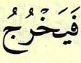 فَيَخْرُجُ